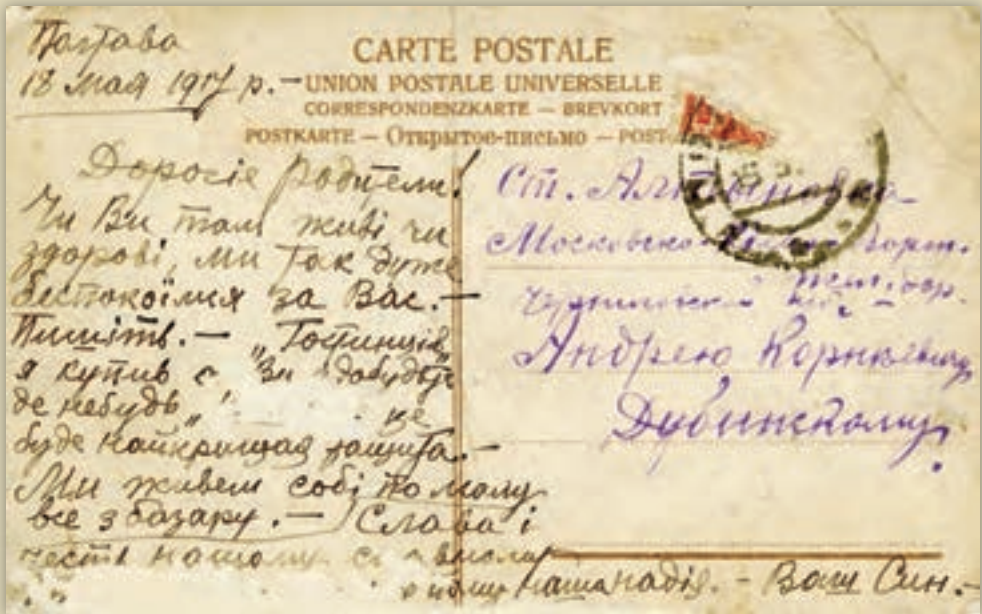 Полтава
18 мая 1917 р. —
CARTE POSTALE
UNION POSTALE UNIVERSELLE
CORRESPONDENZKARTE — BREVKORT
POSTKARTE — Открытое-письмо — POST
Дорогіе родители!
Чи Ви там живі чи
здорові, ми так дуже
беспокоїмся за Вас. —
Пишіть. — „Гостинців
я купив
де небудь„ це
буде найкришая защита. —
Ми живем собі по малу
все з базару. — Слава і
честь нашому
в йому наша надія. — Ваш Син. —
Ст. Алтыновка
Московско
Андрею Корнеевичу
Дубинскому.